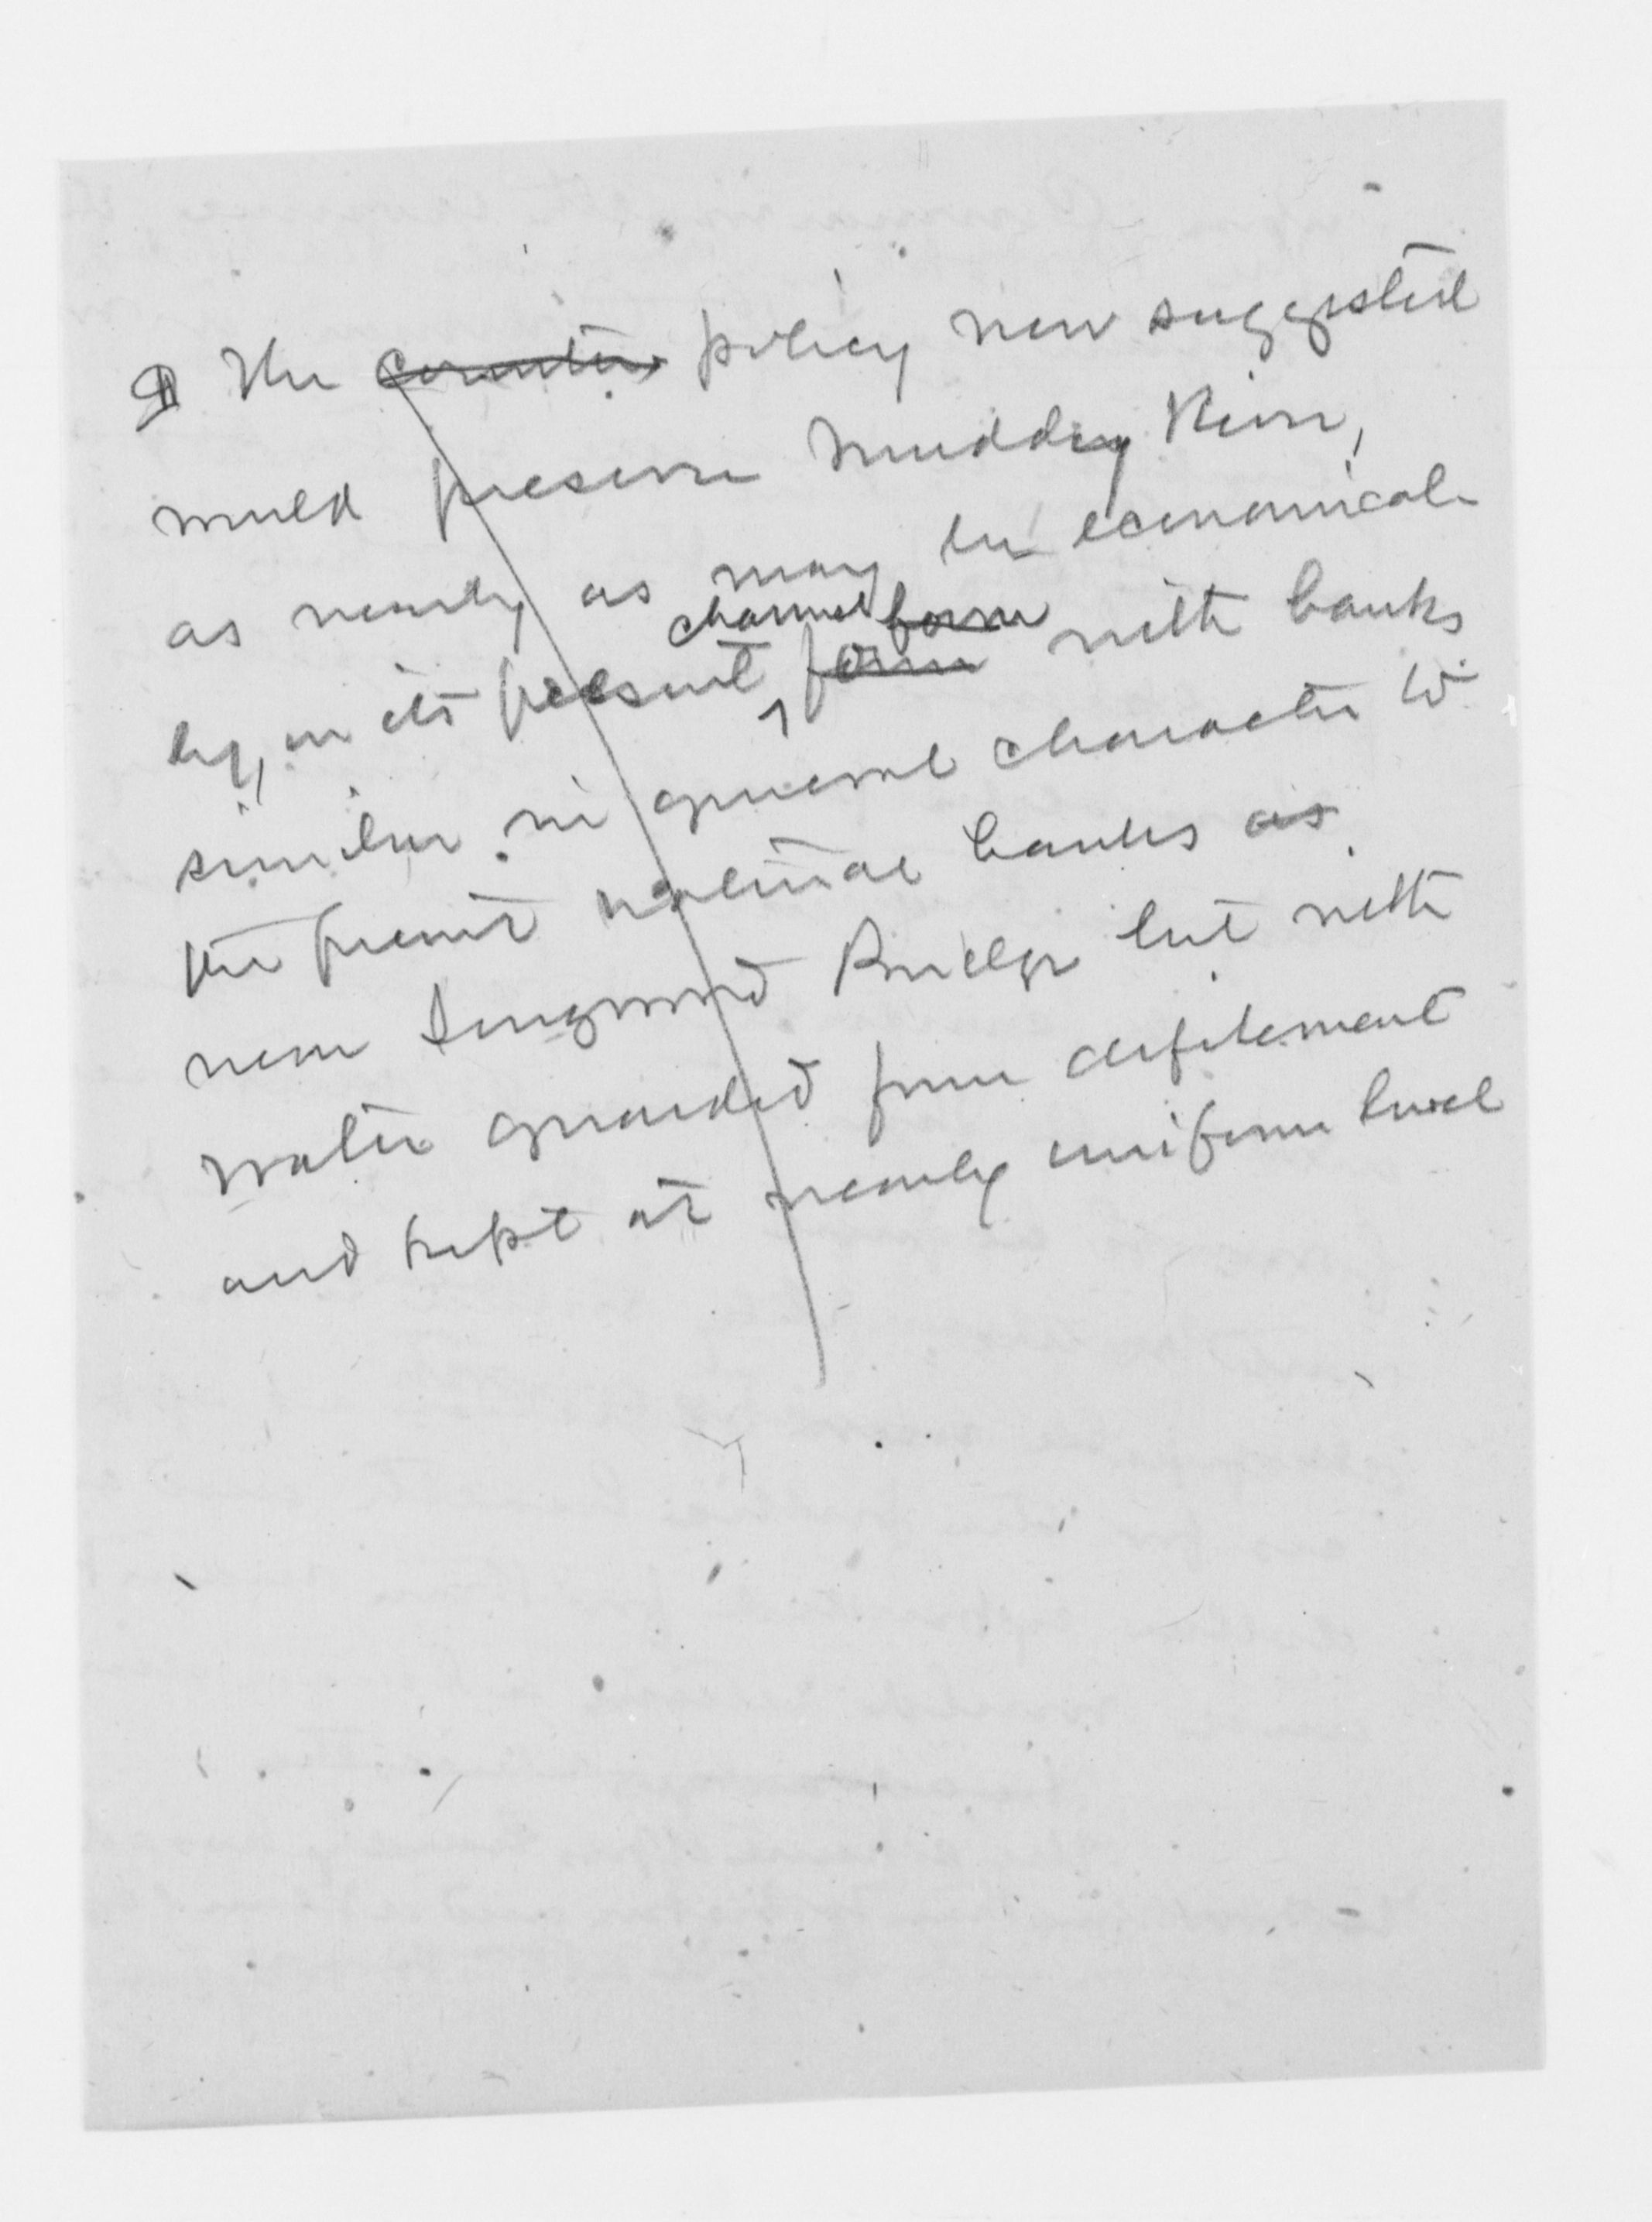 The counter policy now suggested
would preserve Muddy River,
as nearly as may be economical-
channel form
ly, in its present form with banks
similar in general character to
the present natural banks as
near Longwood Bridge but with
water guarded from defilement
and kept at nearly uniform level